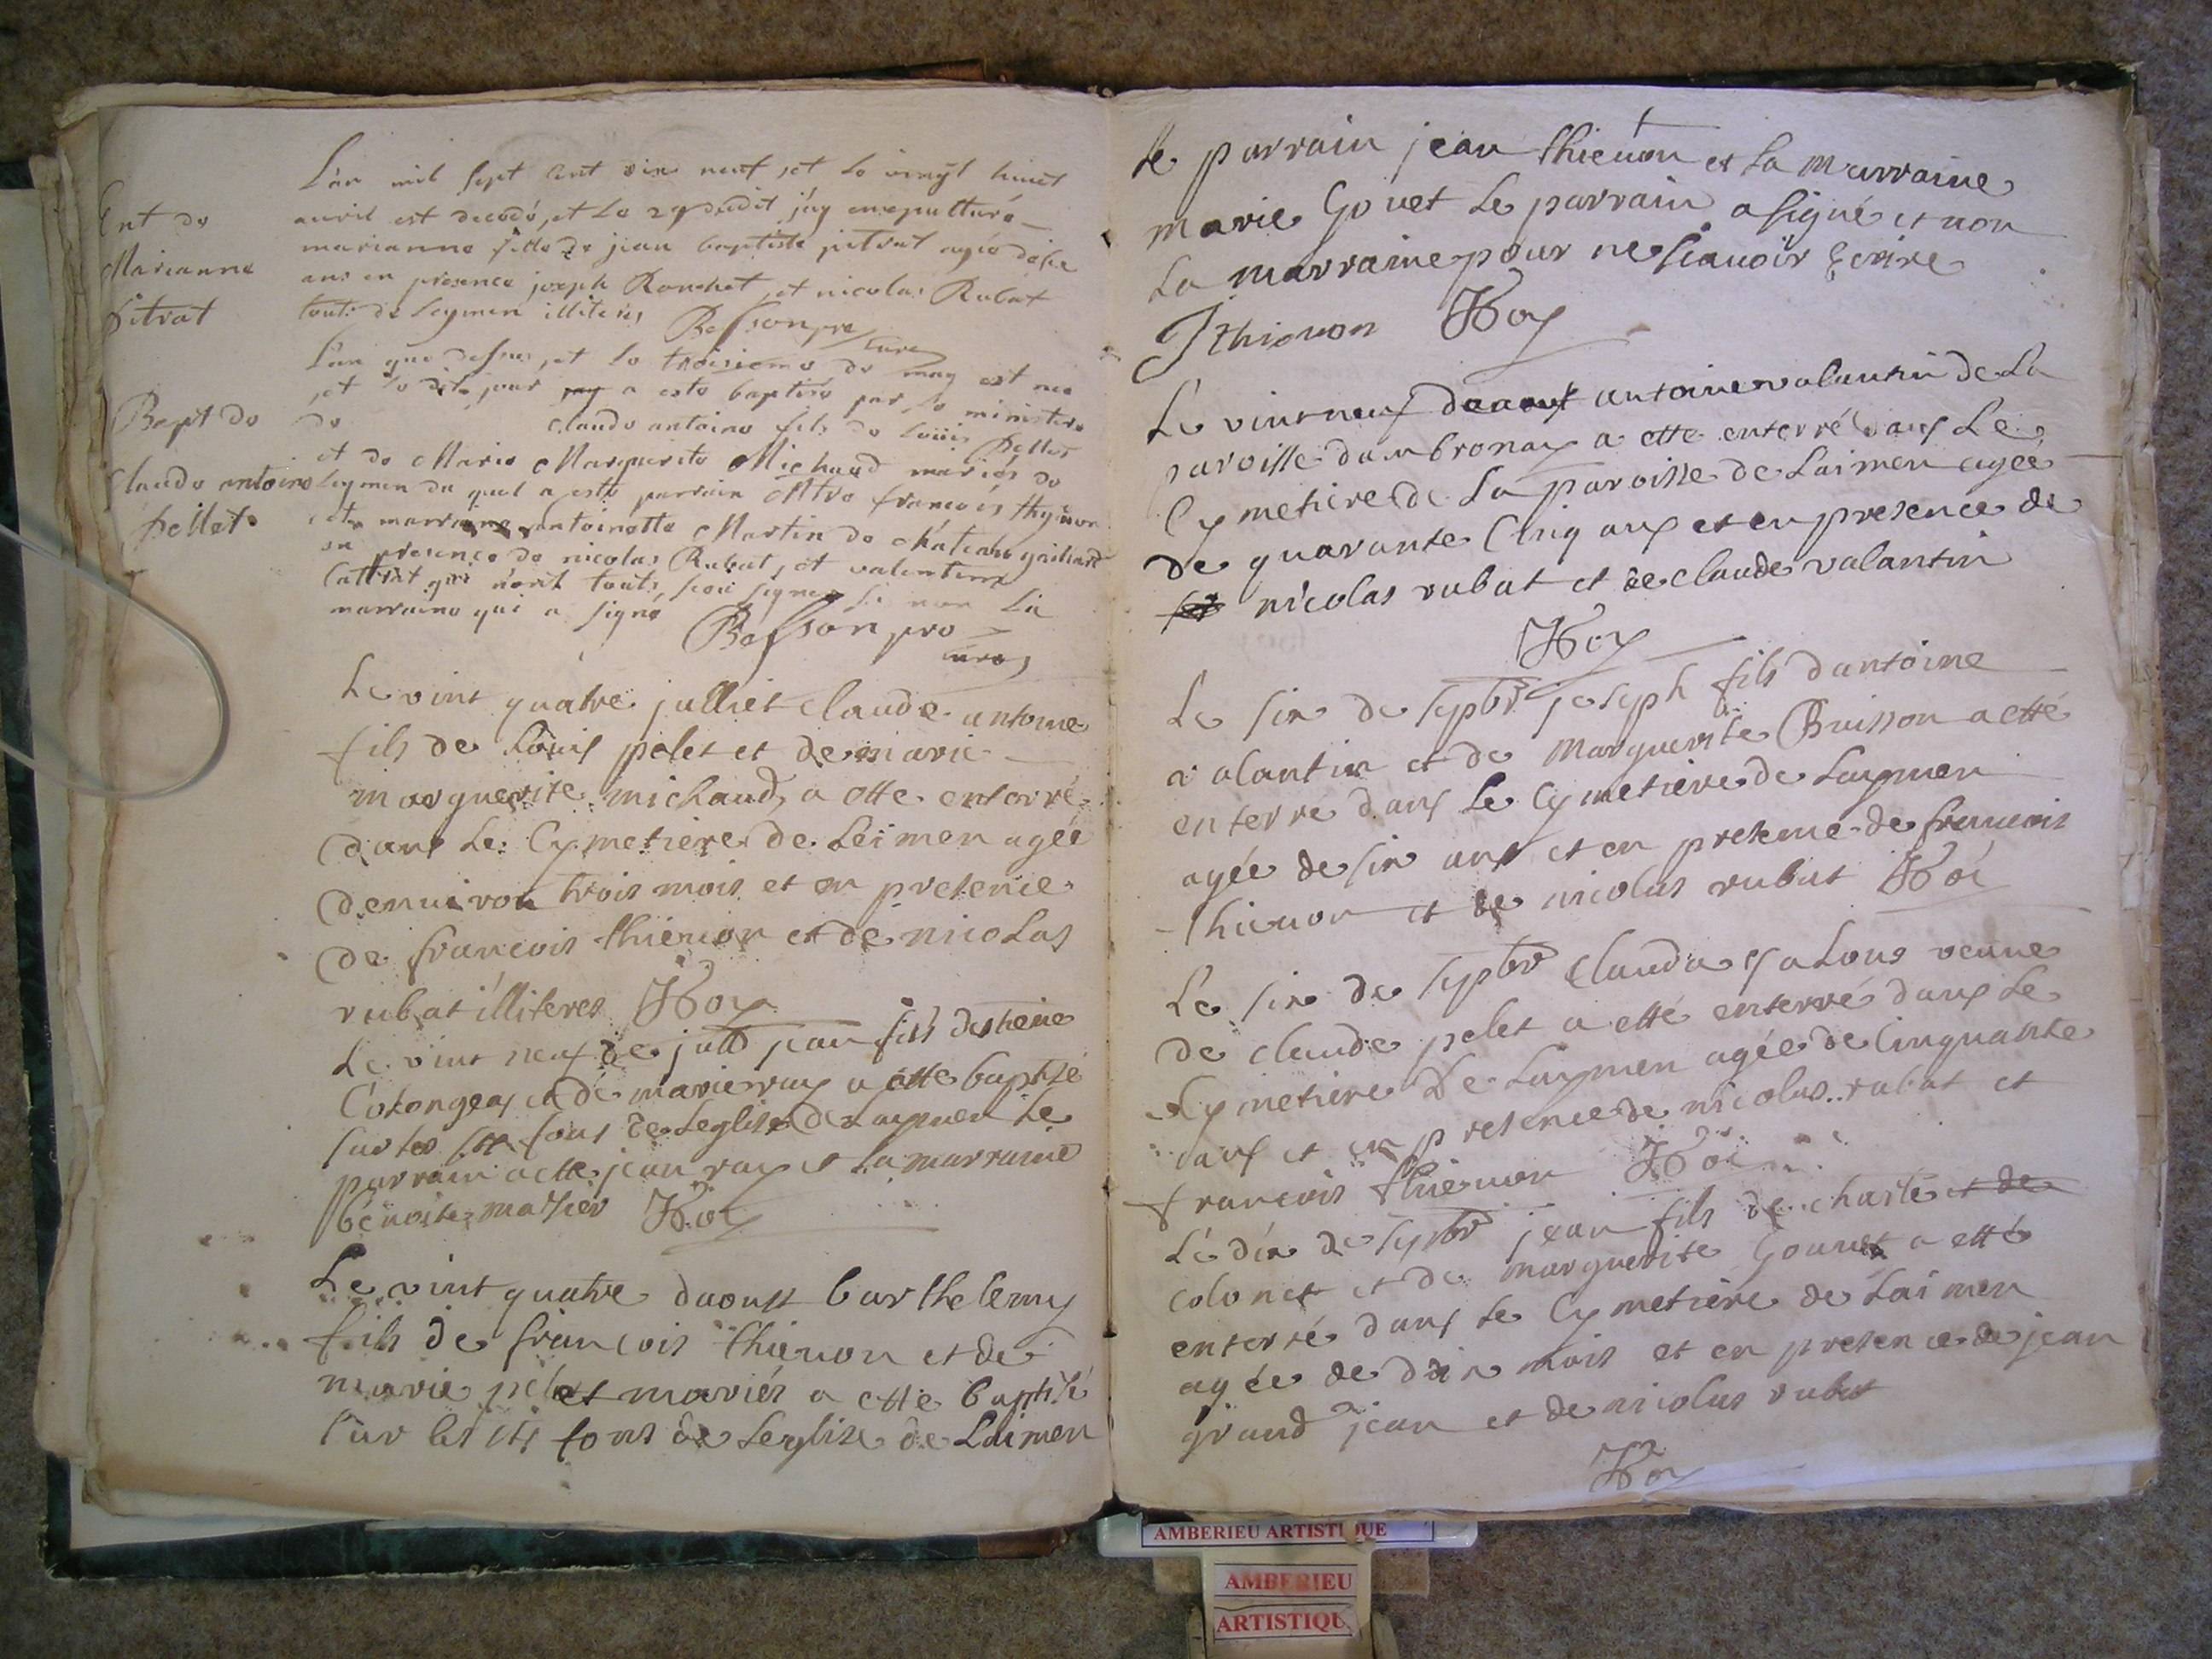 L'an mil sept cent dix neuf, et le vingt huict
avril est decedé, et le 29 dudit j'ay ensepulturé
marianne fille de jean baptiste pitrat agée de six
ans en presence joseph Ronchet, et nicolas Rubat
touts de Leymen illiterés Besson pre
curé
Ent de
Marianne
pitrat
L'an que dessus, et le troisieme de may est né
et le dit jour jay a esté baptisé par le ministere
de claude antoine fils de Louis pellet
et de Marie Marguerite Michaud mariés de
Leymen du quel a esté parrain Mtre francois thyevon
et marraine antoinette Martin de chateau gaillard
en presence de nicolas Rubat, et valentin
qui n'ont touts sceu signer si non la
marraine qui a signé Besson pre
curé
Bapt de
claude antoine
pellet
Le vint quatre julliet claude antoine
fils de Louis pelet et de marie
marguerite michaud a ette enterré
dans Le Cymetiere de Leimen agée
denuiron trois mois et en presence
de francois thieuon et de nicolas
rubat illiteres Roy
Le vint neuf de jullt jean fils destiene
Colonges et de marie ray a ette baptisé
sur les stt fons de Leglise de Laymen Le
parrain a ette jean ray et La marraine
benoite matier Roy
Le vint quatre daoust barthelemy
fils de francois thieuon et de
marie pelet mariés a ette baptisé
sur les sts fons de Leglise de Laimen
Le parrain jean thieuon et La marraine
marie Gouet Le parrain a signé et non
La marraine pour ne scauoir Ecrire
J thieuon Roy
Le vint neuf daoust antoine valantin de La
paroisse dambronay a ette enterré dans Le
Cymetiere de La paroisse de Laimen agée
de quarante Cinq ans et en presence de
nicolas rubat et de claude valantin
Roy
Le six de septbr joseph fils dantoine
valantin et de marguerite Buisson a etté
enterré dans Le Cymetiere de Laymen
agée de six ans et en presence de francois
thieuon et de nicolas rubat Roi
Le six de septbr clauda jalons veuue
de claude pelet a etté enterré dans Le
Cymetiere de Laymen agée de Cinquante
ans et en presence de nicolas rubat et
francois thieuon Roi
Le dix de septbr jean fils de charle et de
colonet et de marguerite Gouuet a etté
enterré dans Le Cymetiere de Laimen
agée de dix mois et en presence de jean
grand jean et de nicolas rubat
Roy
AMBERIEU ARTISTIQUE
AMBERIEU
ARTISTIQU